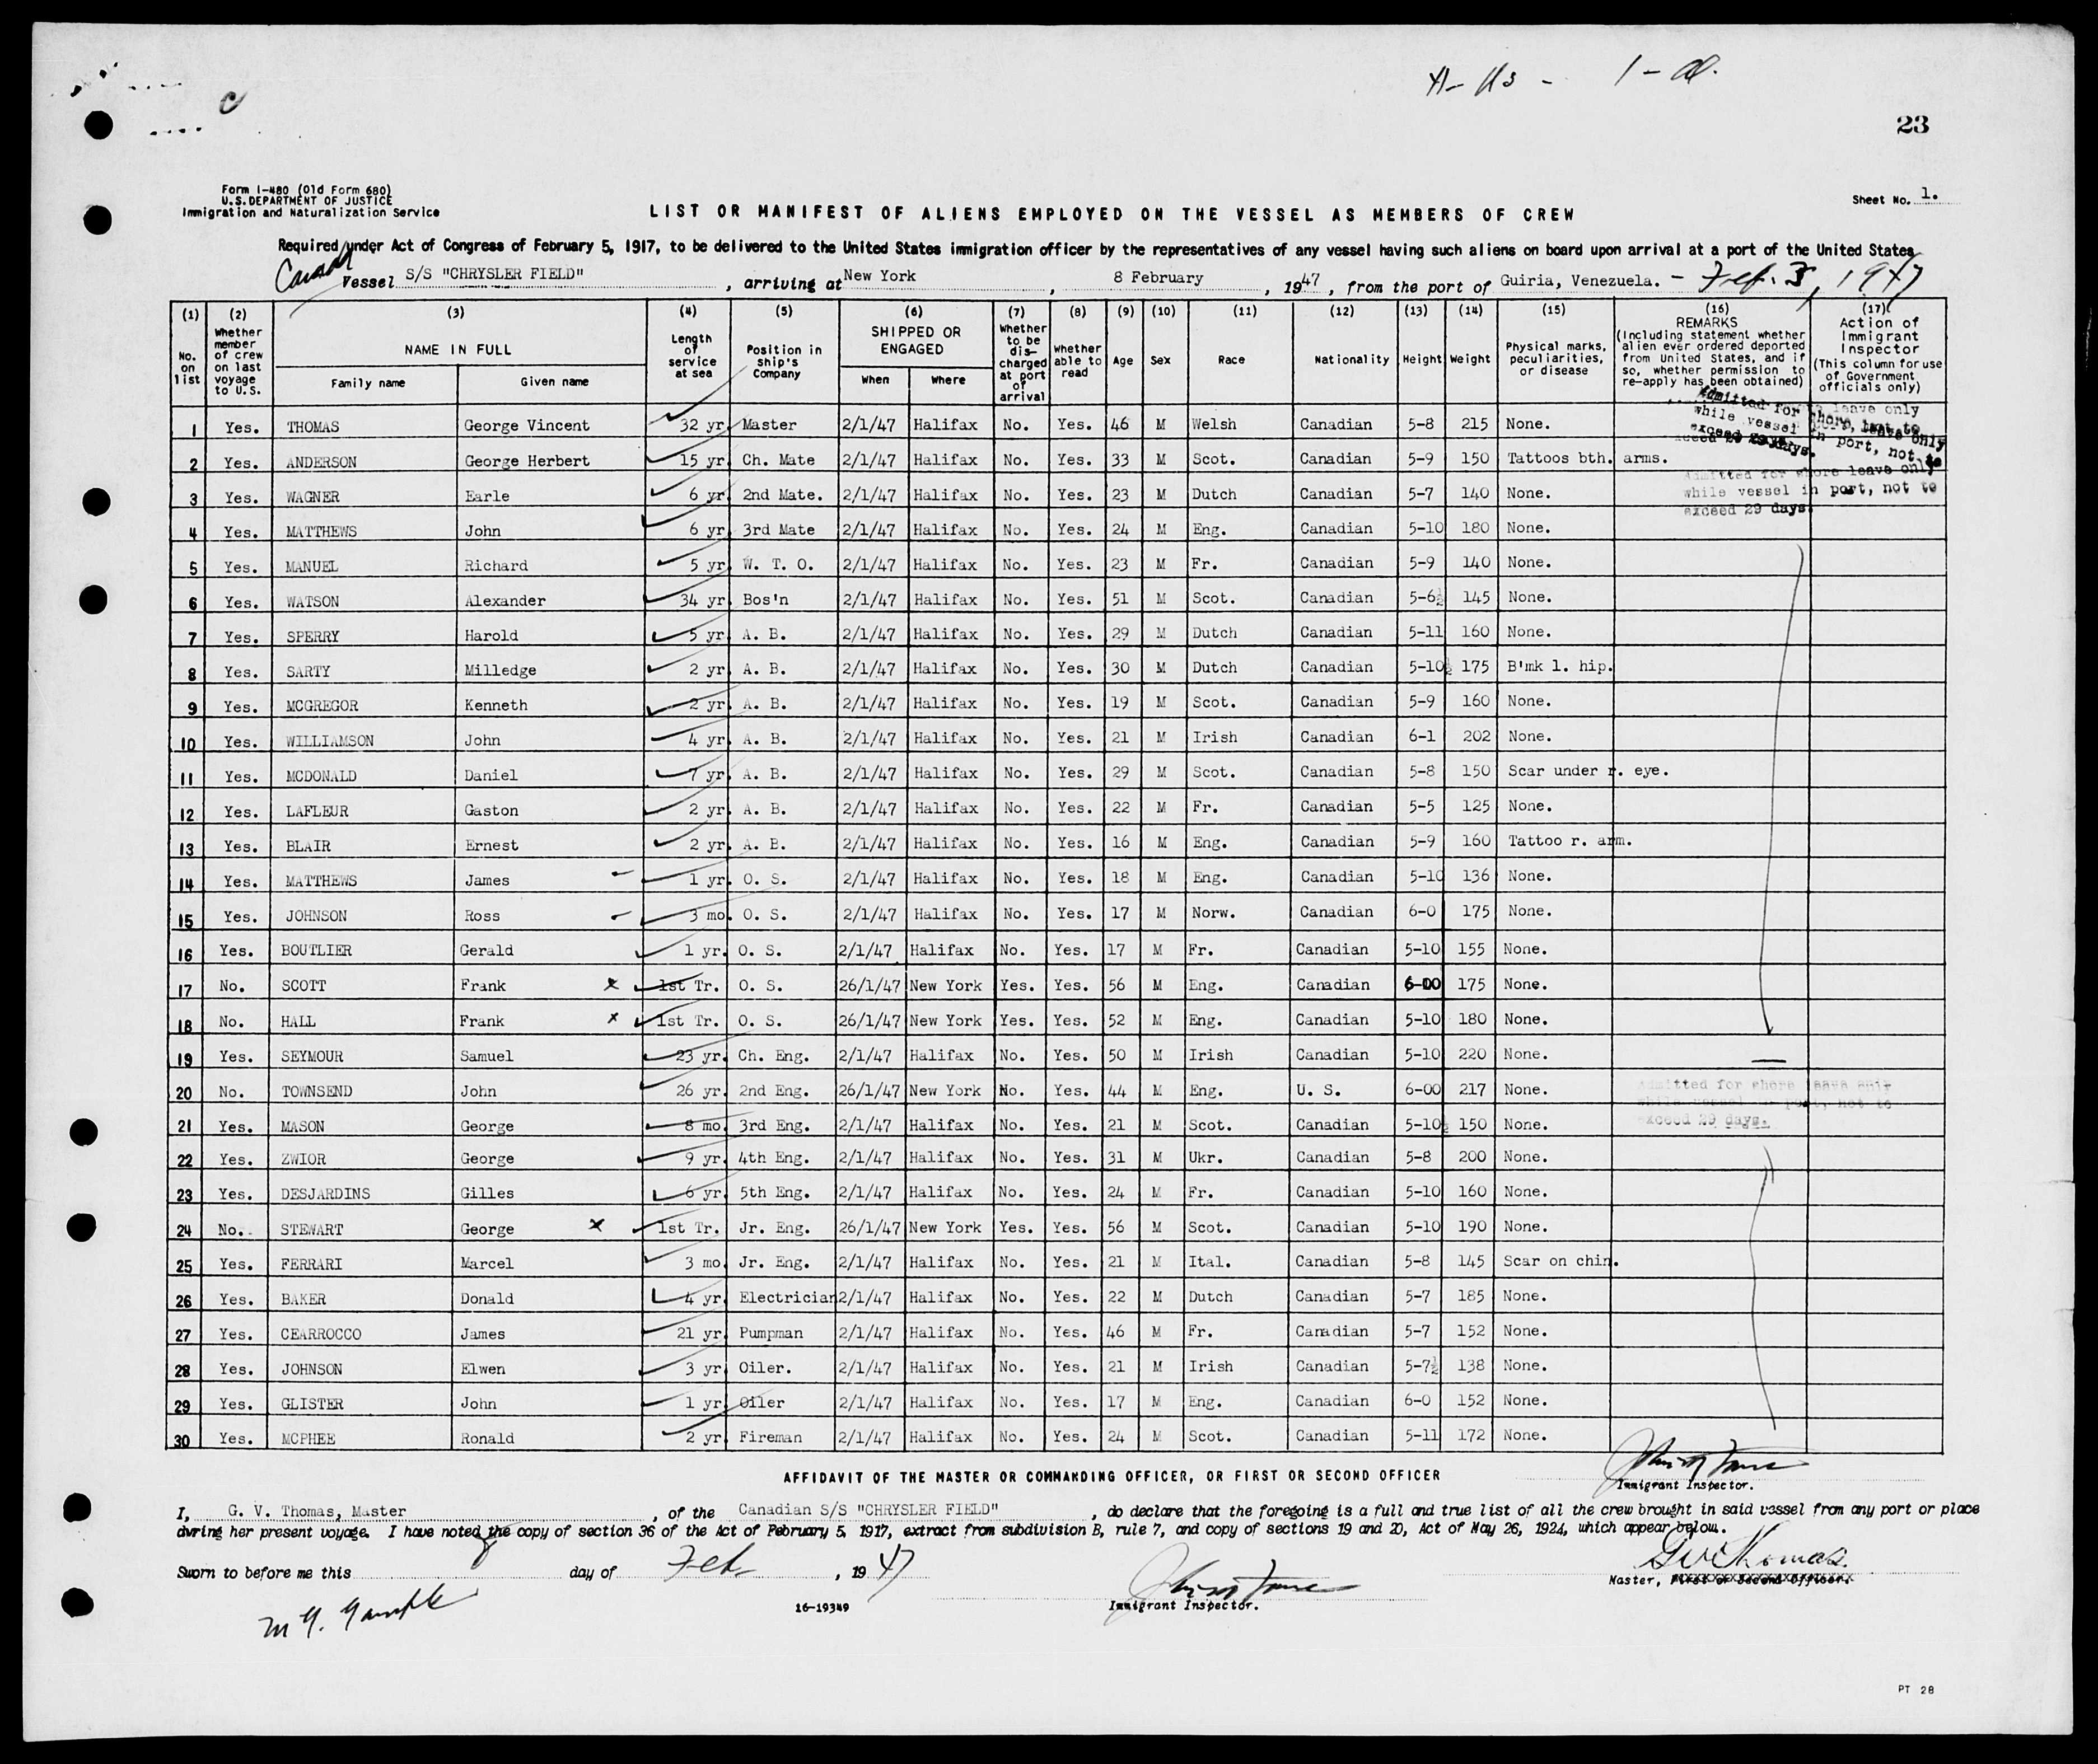 1 - 
23
Form I-480 (Old Form 680)
U.S. DEPARTMENT OF JUSTICE
Immigration and Naturalization Service
Sheet No. 1.
LIST OR MANIFEST OF ALIENS EMPLOYED ON THE VESSEL AS MEMBERS OF CREW
Required under Act of Congress of February 5, 1917, to be delivered to the United States immigration officer by the representatives of any vessel having such aliens on board upon arrival at a port of the United States
Vessel S/S "CHRYSLER FIELD", arriving at New York, 8 February, 1947, from the port of Guiria, Venezuela. - Feb. 3, 1947
(1) No. on list (2) Whether member of crew on last voyage to U.S. (3) NAME IN FULL Family name Given name (4) Length of service at sea (5) Position in ship's Company (6) SHIPPED OR ENGAGED When Where (7) Whether to be discharged at port of arrival (8) Whether able to read (9) Age (10) Sex (11) Race (12) Nationality (13) Height (14) Weight (15) Physical marks, peculiarities, or disease (16) REMARKS (Including statement whether alien ever ordered deported from United States, and if so, whether permission to re-apply has been obtained) (17) Action of Immigrant Inspector (This column for use of Government officials only)
1 Yes. THOMAS George Vincent 32 yr. Master 2/1/47 Halifax No. Yes. 46 M Welsh Canadian 5-8 215 None.
2 Yes. ANDERSON George Herbert 15 yr. Ch. Mate 2/1/47 Halifax No. Yes. 33 M Scot. Canadian 5-9 150 Tattoos bth. arms.
3 Yes. WAGNER Earle 6 yr. 2nd Mate. 2/1/47 Halifax No. Yes. 23 M Dutch Canadian 5-7 140 None.
Admitted for shore leave only while vessel in port, not to exceed 29 days.
4 Yes. MATTHEWS John 6 yr. 3rd Mate 2/1/47 Halifax No. Yes. 24 M Eng. Canadian 5-10 180 None.
5 Yes. MANUEL Richard 5 yr. W. T. O. 2/1/47 Halifax No. Yes. 23 M Fr. Canadian 5-9 140 None.
6 Yes. WATSON Alexander 34 yr. Bos'n 2/1/47 Halifax No. Yes. 51 M Scot. Canadian 5-6½ 145 None.
7 Yes. SPERRY Harold 5 yr. A. B. 2/1/47 Halifax No. Yes. 29 M Dutch Canadian 5-11 160 None.
8 Yes. SARTY Milledge 2 yr. A. B. 2/1/47 Halifax No. Yes. 30 M Dutch Canadian 5-10½ 175 B'mk l. hip.
9 Yes. MCGREGOR Kenneth 2 yr. A. B. 2/1/47 Halifax No. Yes. 19 M Scot. Canadian 5-9 160 None.
10 Yes. WILLIAMSON John 4 yr. A. B. 2/1/47 Halifax No. Yes. 21 M Irish Canadian 6-1 202 None.
11 Yes. MCDONALD Daniel 7 yr. A. B. 2/1/47 Halifax No. Yes. 29 M Scot. Canadian 5-8 150 Scar under r. eye.
12 Yes. LAFLEUR Gaston 2 yr. A. B. 2/1/47 Halifax No. Yes. 22 M Fr. Canadian 5-5 125 None.
13 Yes. BLAIR Ernest 2 yr. A. B. 2/1/47 Halifax No. Yes. 16 M Eng. Canadian 5-9 160 Tattoo r. arm.
14 Yes. MATTHEWS James 1 yr. O. S. 2/1/47 Halifax No. Yes. 18 M Eng. Canadian 5-10 136 None.
15 Yes. JOHNSON Ross 3 mo. O. S. 2/1/47 Halifax No. Yes. 17 M Norw. Canadian 6-0 175 None.
16 Yes. BOUTLIER Gerald 1 yr. O. S. 2/1/47 Halifax No. Yes. 17 M Fr. Canadian 5-10 155 None.
17 No. SCOTT Frank x 1st Tr. O. S. 26/1/47 New York Yes. Yes. 56 M Eng. Canadian 6-00 175 None.
18 No. HALL Frank x 1st Tr. O. S. 26/1/47 New York Yes. Yes. 52 M Eng. Canadian 5-10 180 None.
19 Yes. SEYMOUR Samuel 23 yr. Ch. Eng. 2/1/47 Halifax No. Yes. 50 M Irish Canadian 5-10 220 None.
20 No. TOWNSEND John 26 yr. 2nd Eng. 26/1/47 New York No. Yes. 44 M Eng. U. S. 6-00 217 None.
Admitted for shore leave only while vessel in port, not to exceed 29 days.
21 Yes. MASON George 8 mo. 3rd Eng. 2/1/47 Halifax No. Yes. 21 M Scot. Canadian 5-10½ 150 None.
22 Yes. ZWIOR George 9 yr. 4th Eng. 2/1/47 Halifax No. Yes. 31 M Ukr. Canadian 5-8 200 None.
23 Yes. DESJARDINS Gilles 6 yr. 5th Eng. 2/1/47 Halifax No. Yes. 24 M Fr. Canadian 5-10 160 None.
24 No. STEWART George x 1st Tr. Jr. Eng. 26/1/47 New York Yes. Yes. 56 M Scot. Canadian 5-10 190 None.
25 Yes. FERRARI Marcel 3 mo. Jr. Eng. 2/1/47 Halifax No. Yes. 21 M Ital. Canadian 5-8 145 Scar on chin.
26 Yes. BAKER Donald 4 yr. Electrician 2/1/47 Halifax No. Yes. 22 M Dutch Canadian 5-7 185 None.
27 Yes. CEARROCCO James 21 yr. Pumpman 2/1/47 Halifax No. Yes. 46 M Fr. Canadian 5-7 152 None.
28 Yes. JOHNSON Elwen 3 yr. Oiler. 2/1/47 Halifax No. Yes. 21 M Irish Canadian 5-7½ 138 None.
29 Yes. GLISTER John 1 yr. Oiler 2/1/47 Halifax No. Yes. 17 M Eng. Canadian 6-0 152 None.
30 Yes. MCPHEE Ronald 2 yr. Fireman 2/1/47 Halifax No. Yes. 24 M Scot. Canadian 5-11 172 None.
AFFIDAVIT OF THE MASTER OR COMMANDING OFFICER, OR FIRST OR SECOND OFFICER
Immigrant Inspector.
I, G. V. Thomas, Master, of the Canadian S/S "CHRYSLER FIELD", do declare that the foregoing is a full and true list of all the crew brought in said vessel from any port or place
during her present voyage. I have noted the copy of section 36 of the Act of February 5, 1917, extract from subdivision B, rule 7, and copy of sections 19 and 20, Act of May 26, 1924, which appear below.
GVThomas.
Sworn to before me this 8 day of Feb, 1947
Master, First or Second Officer.
16-19349
Immigrant Inspector.
PT 28